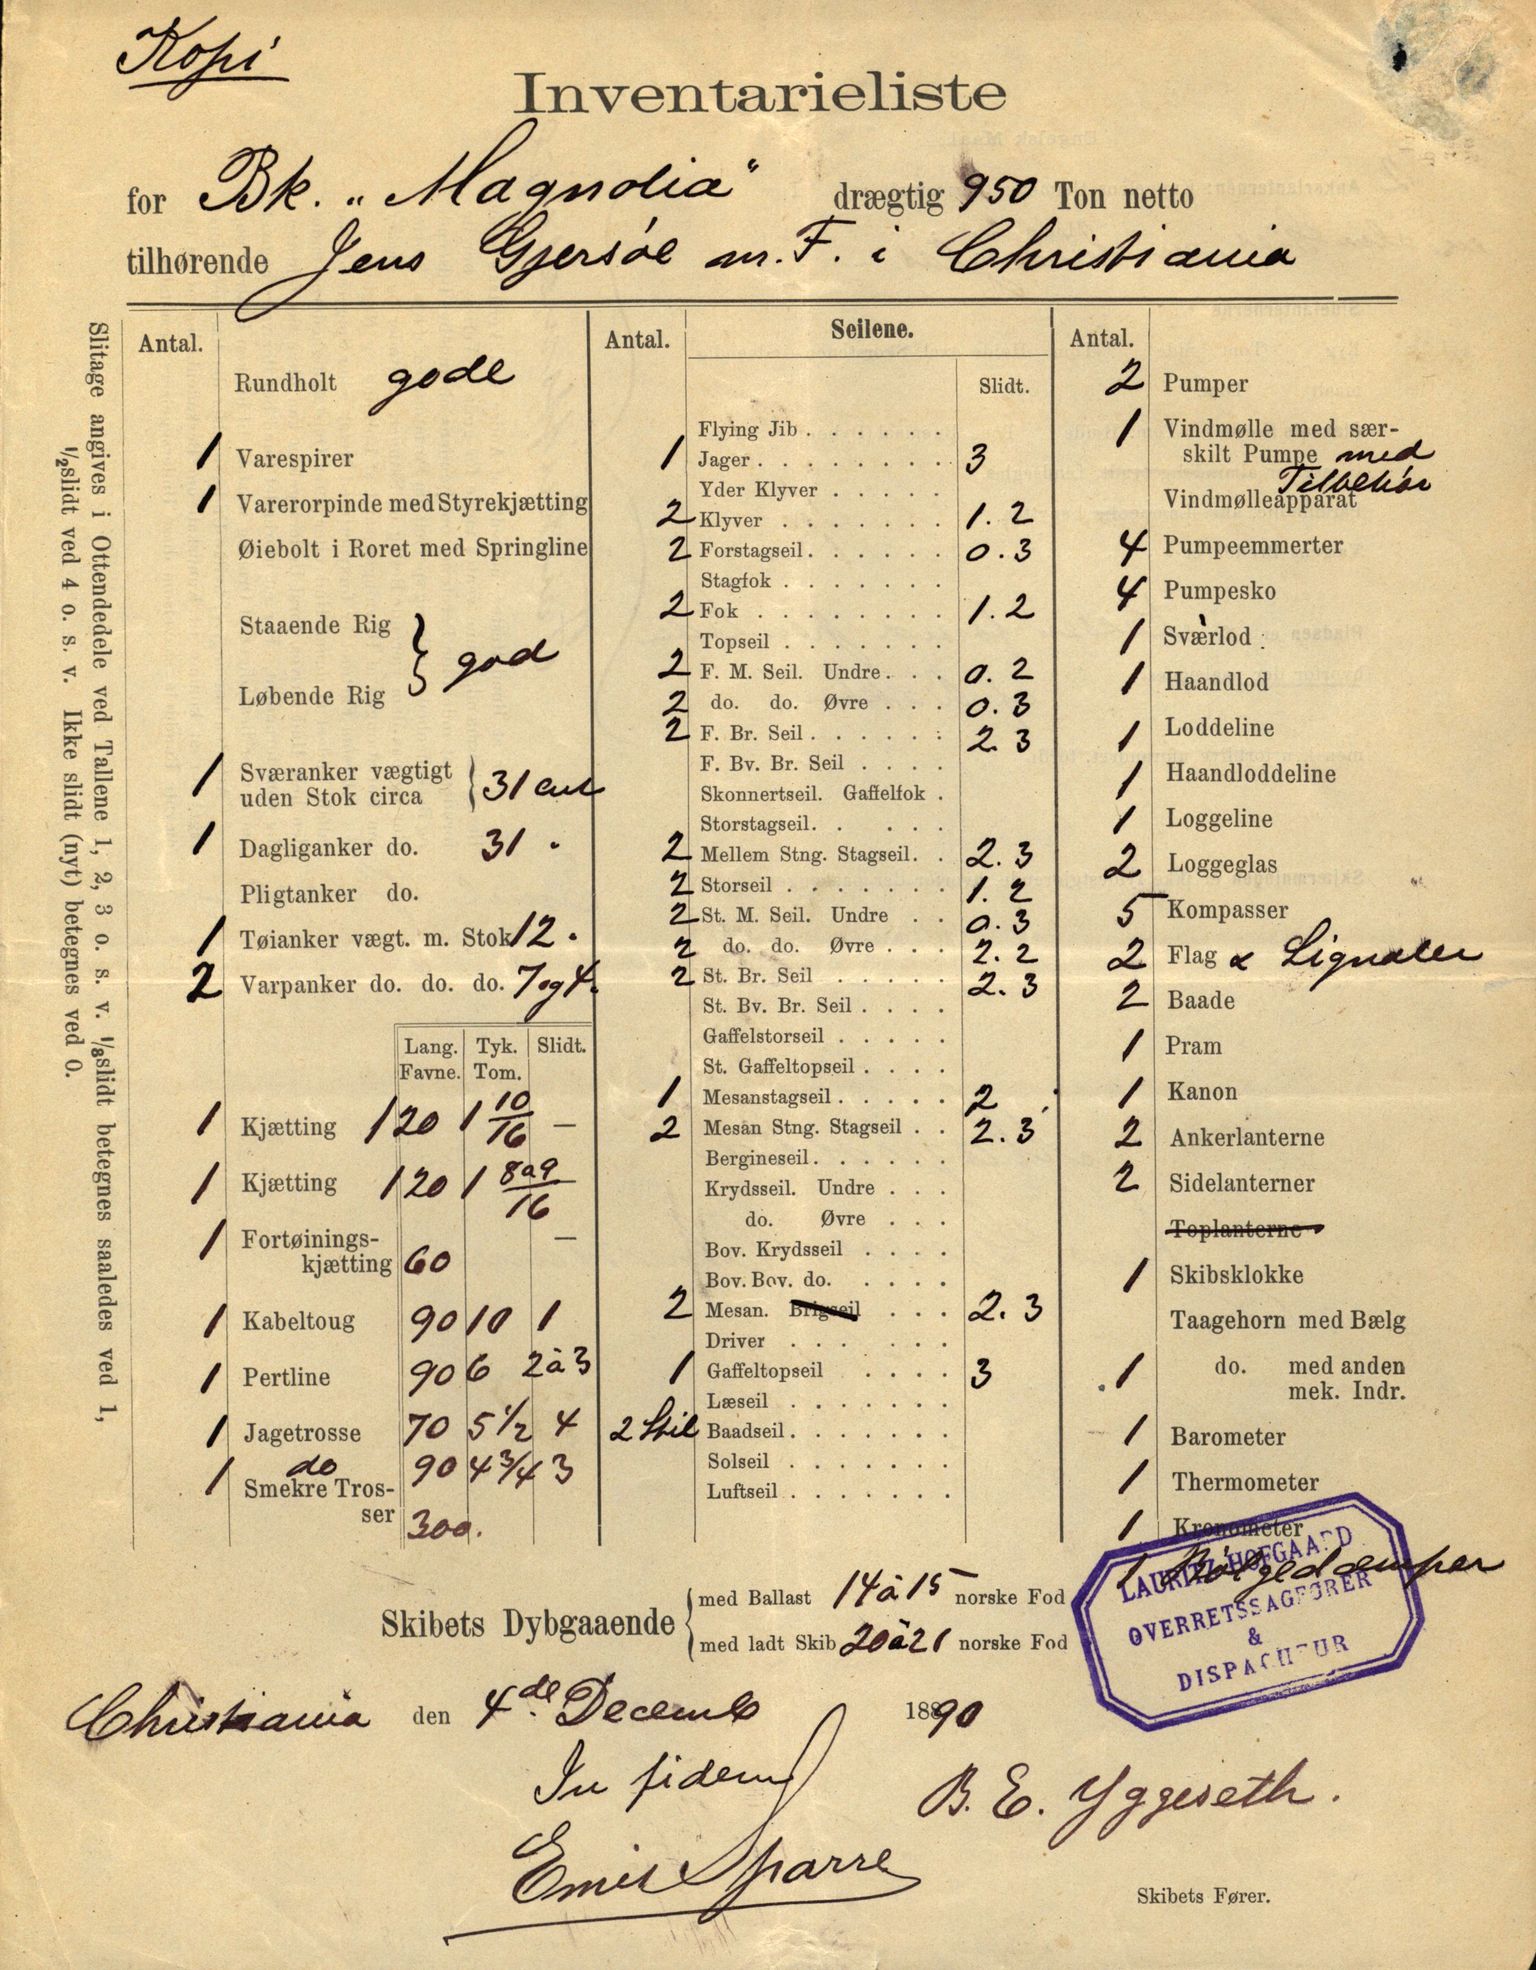 Kopi
Inventarieliste
for Bk. „Magnolia" drægtig 950 Ton netto
tilhørende Jens Gjersøe m. F. i Christiania
Slitage angives i Ottendedele ved Tallene 1, 2, 3 o. s. v. 1/8slidt betegnes saaledes ved 1,
1/2slidt ved 4 o. s. v. Ikke slidt (nyt) betegnes ved 0.
Antal.
Rundholt gode
1 Varespirer
1 Varerorpinde med Styrekjætting
Øiebolt i Roret med Springline
Staaende Rig
} god
Løbende Rig
1 Sværanker vægtigt
uden Stok circa { 31 cwt
1 Dagliganker do. 31 "
Pligtanker do.
1 Tøianker vægt. m. Stok 12 "
2 Varpanker do. do. do. 7 og 4 "
Lang. Tyk. Slidt.
Favne. Tom.
1 Kjætting 120 1 10/16 —
1 Kjætting 120 1 8 a 9/16
1 Fortøinings- —
kjætting 60
1 Kabeltoug 90 10 1
1 Pertline 90 6 2 à 3
1 Jagetrosse 70 5 1/2 4
1 do 90 4 3/4 3
Smekre Tros-
ser 300.
Antal. Seilene.
Slidt.
Flying Jib . . . . . .
1 Jager . . . . . . . . 3
Yder Klyver . . . . .
2 Klyver . . . . . . . 1. 2
2 Forstagseil . . . . . . 0. 3
Stagfok . . . . . . .
2 Fok . . . . . . . . 1. 2
Topseil . . . . . . .
2 F. M. Seil. Undre . . . 0. 2
2 do. do. Øvre . . . 0. 3
2 F. Br. Seil . . . . . . 2. 3
F. Bv. Br. Seil . . . .
Skonnertseil. Gaffelfok .
Storstagseil. . . . .
2 Mellem Stng. Stagseil. . 2. 3
2 Storseil . . . . . . . 1. 2
2 St. M. Seil. Undre . . 0. 3
2 do. do. Øvre . . . 2. 2
2 St. Br. Seil . . . . . 2. 3
St. Bv. Br. Seil . . . .
Gaffelstorseil . . . . .
St. Gaffeltopseil . . . .
1 Mesanstagseil . . . . . 2
2 Mesan Stng. Stagseil . . 2. 3
Bergineseil. . . . . .
Krydsseil. Undre . . .
do. Øvre . . .
Bov. Krydsseil . . . .
Bov. Bov. do. . . . .
2 Mesan. Brigseil . . . 2. 3
Driver . . . . . . .
1 Gaffeltopseil . . . . 3
Læseil . . . . . . .
2 Stil Baadseil . . . . . . .
Solseil . . . . . . .
Luftseil . . . . . . .
Antal.
2 Pumper
1 Vindmølle med sær-
skilt Pumpe med
Tilbehør
Vindmølleapparat
4 Pumpeemmerter
4 Pumpesko
1 Sværlod
1 Haandlod
1 Loddeline
1 Haandloddeline
1 Loggeline
2 Loggeglas
5 Kompasser
2 Flag & Signaler
2 Baade
1 Pram
1 Kanon
2 Ankerlanterne
2 Sidelanterner
Toplanterne
1 Skibsklokke
Taagehorn med Bælg
1 do. med anden
mek. Indr.
1 Barometer
1 Thermometer
1 Kronometer
1 Bölgedæmper
LAURITZ HOFGAARD
OVERRETSSAGFØRER
&
DISPACHEUR
Skibets Dybgaaende { med Ballast 14 à 15 norske Fod
med ladt Skib 20 à 21 norske Fod
Christiania den 4de Decemb 1890
In fidem
Emil Sparre
B. E. Yggeseth.
Skibets Fører.